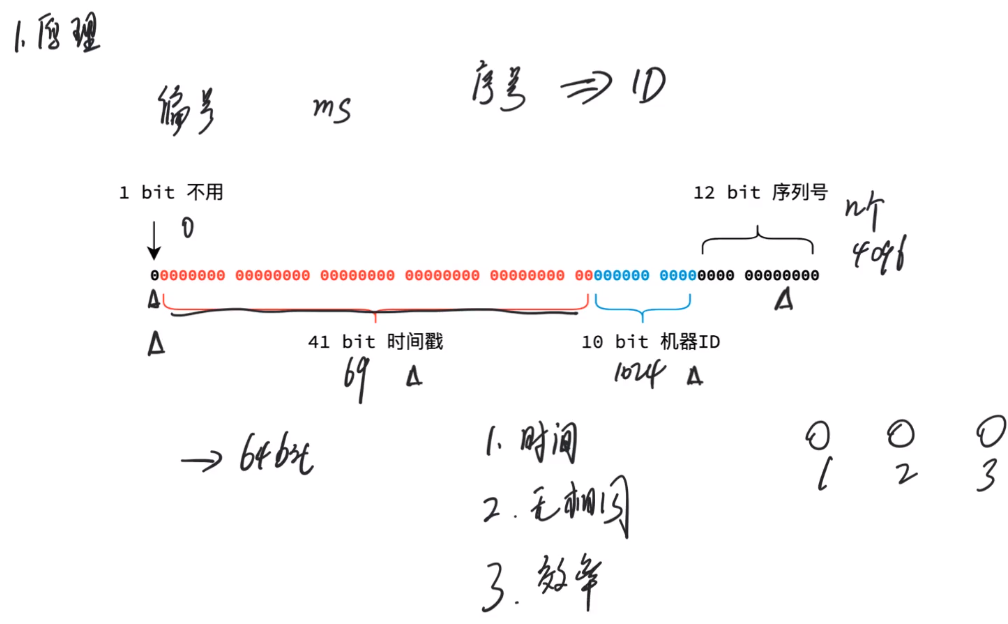 1.原理
编号 ms 序号 ⇒ ID
1 bit 不用
12 bit 序列号
0
n个
4096
00000000 00000000 00000000 00000000 00000000 00000000 00000000 00000000
41 bit 时间戳
10 bit 机器ID
69
1024
→ 64bit
1. 时间
2. 无相同
3. 效率
0 0 0
1 2 3